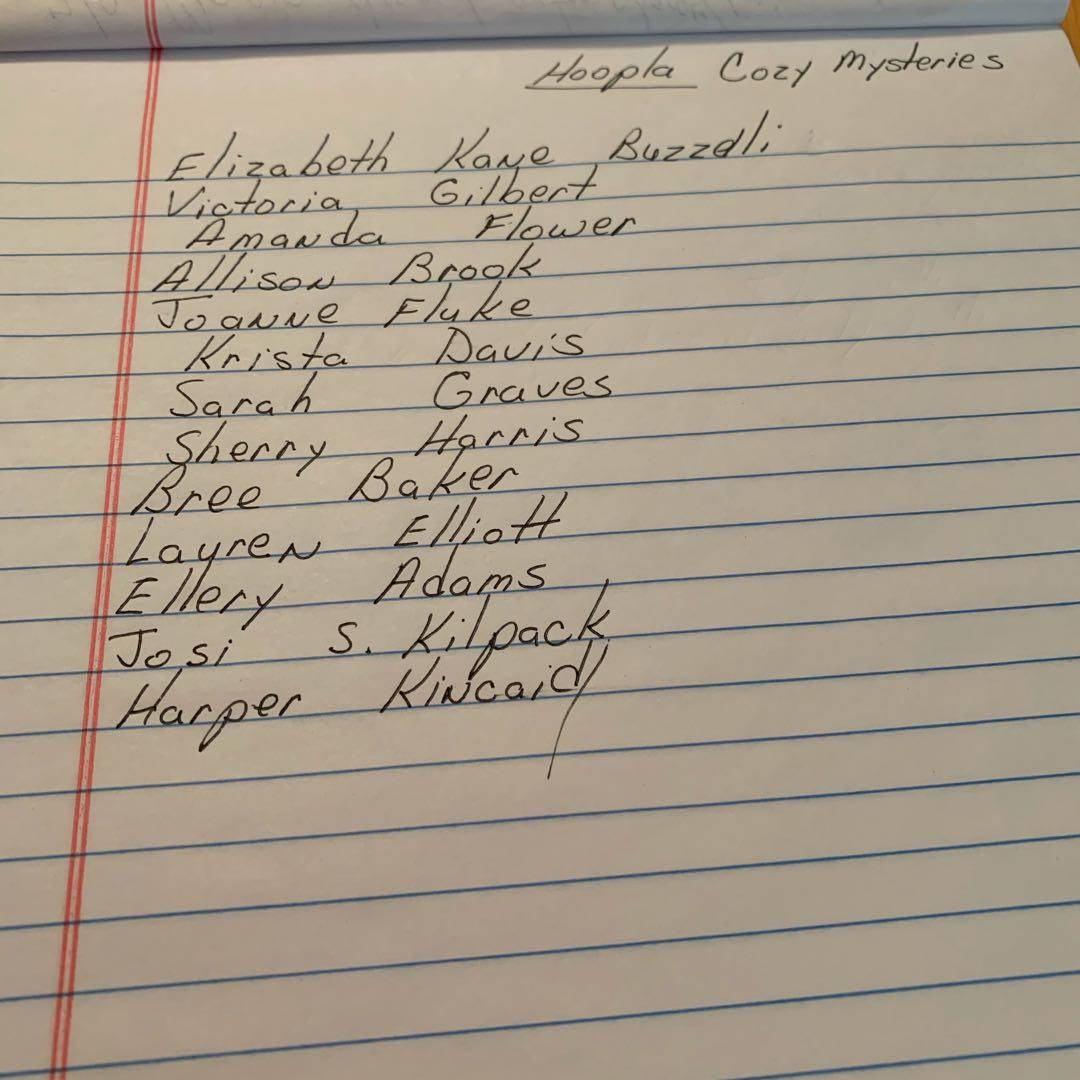 Hoopla Cozy Mysteries
Elizabeth Kane Buzzelli
Victoria Gilbert
Amanda Flower
Allison Brook
Joanne Fluke
Krista Davis
Sarah Graves
Sherry Harris
Bree Baker
Lauren Elliott
Ellery Adams
Josi S. Kilpack
Harper Kincaid